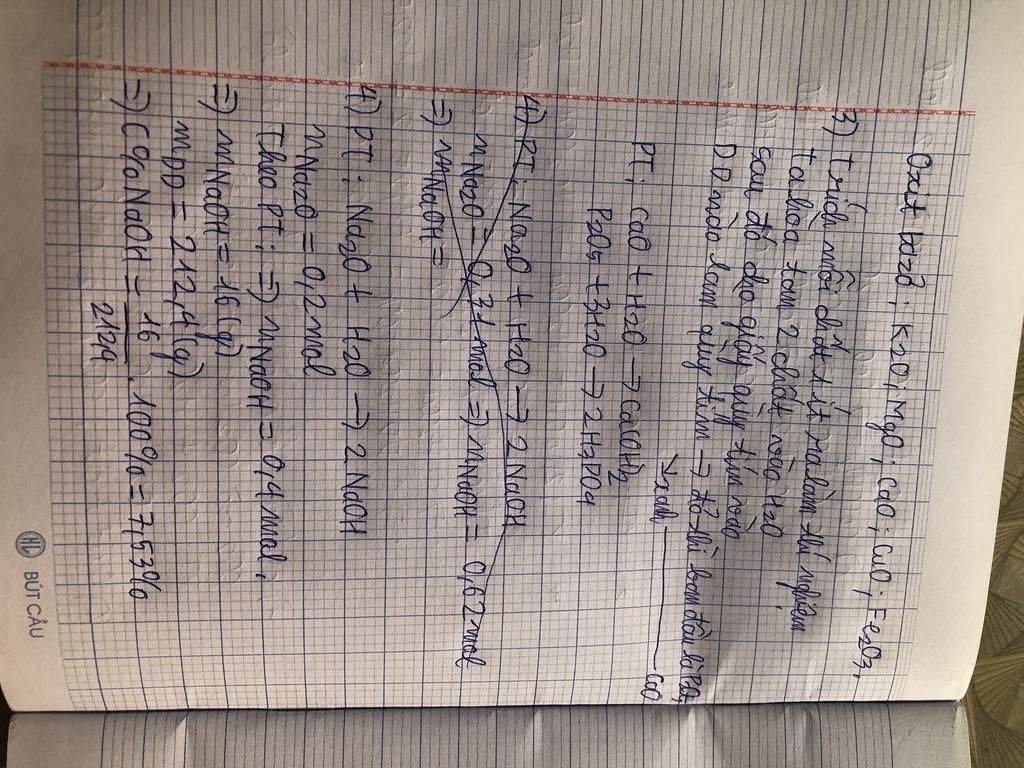 Oxit bazơ: K2O; MgO; CaO; CuO; Fe2O3,
3) Trích mỗi chất 1 ít ra làm thí nghiệm
ta hòa tan 2 chất vào H2O
Sau đó cho giấy quỳ tím vào
DD nào làm quỳ tím → đỏ thì ban đầu là P2O5
↘ xanh ——— CaO
PT: CaO + H2O → Ca(OH)2
P2O5 + 3H2O → 2H3PO4
4) PT: Na2O + H2O → 2NaOH
nNa2O = 0,31 mol ⇒ nNaOH = 0,62 mol
⇒ mNaOH =
4) PT: Na2O + H2O → 2NaOH
nNa2O = 0,2 mol
Theo PT: ⇒ nNaOH = 0,4 mol.
⇒ mNaOH = 16 (g)
mDD = 212,4 (g)
⇒ C% NaOH = 16 / 212,4 . 100% = 7,53%
HL BÚT CÂU